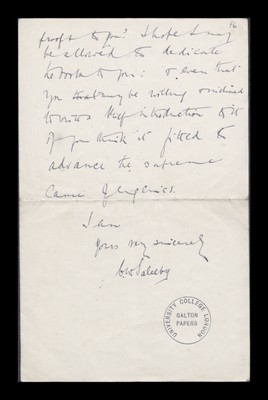 16
proofs to you? I hope I may
be allowed to dedicate
the book to you: & even that
you may be willing
to write introduction to it
if you think it fitted to
advance the supreme
Cause of Eugenics.
I am
Yours very sincerely
C. W. Saleeby
UNIVERSITY COLLEGE LONDON
GALTON
PAPERS